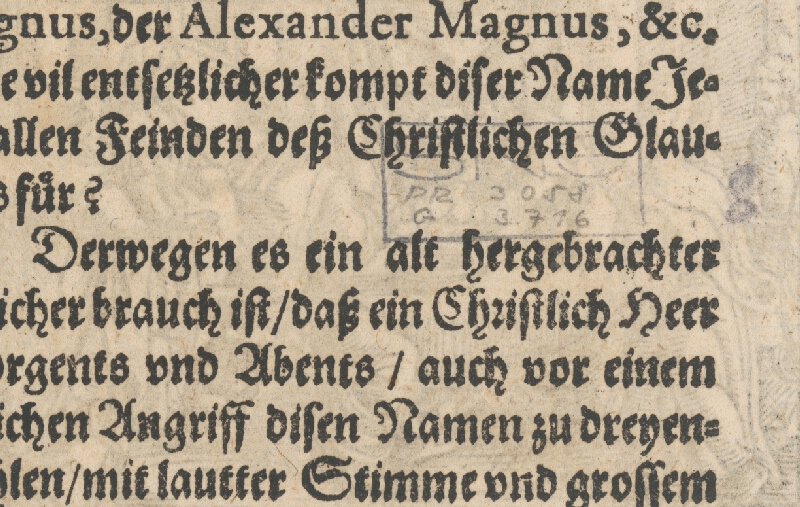 gnus, der Alexander Magnus, &c.
e vil entsetzlicher kompt diser Name Je-
allen Feinden deß Christlichen Glau-
s für?
Derwegen es ein alt hergebrachter
icher brauch ist/daß ein Christlich Heer
orgents vnd Abents / auch vor einem
ichen Angriff disen Namen zu dreyen-
hlen/mit lautter Stimme vnd grossem